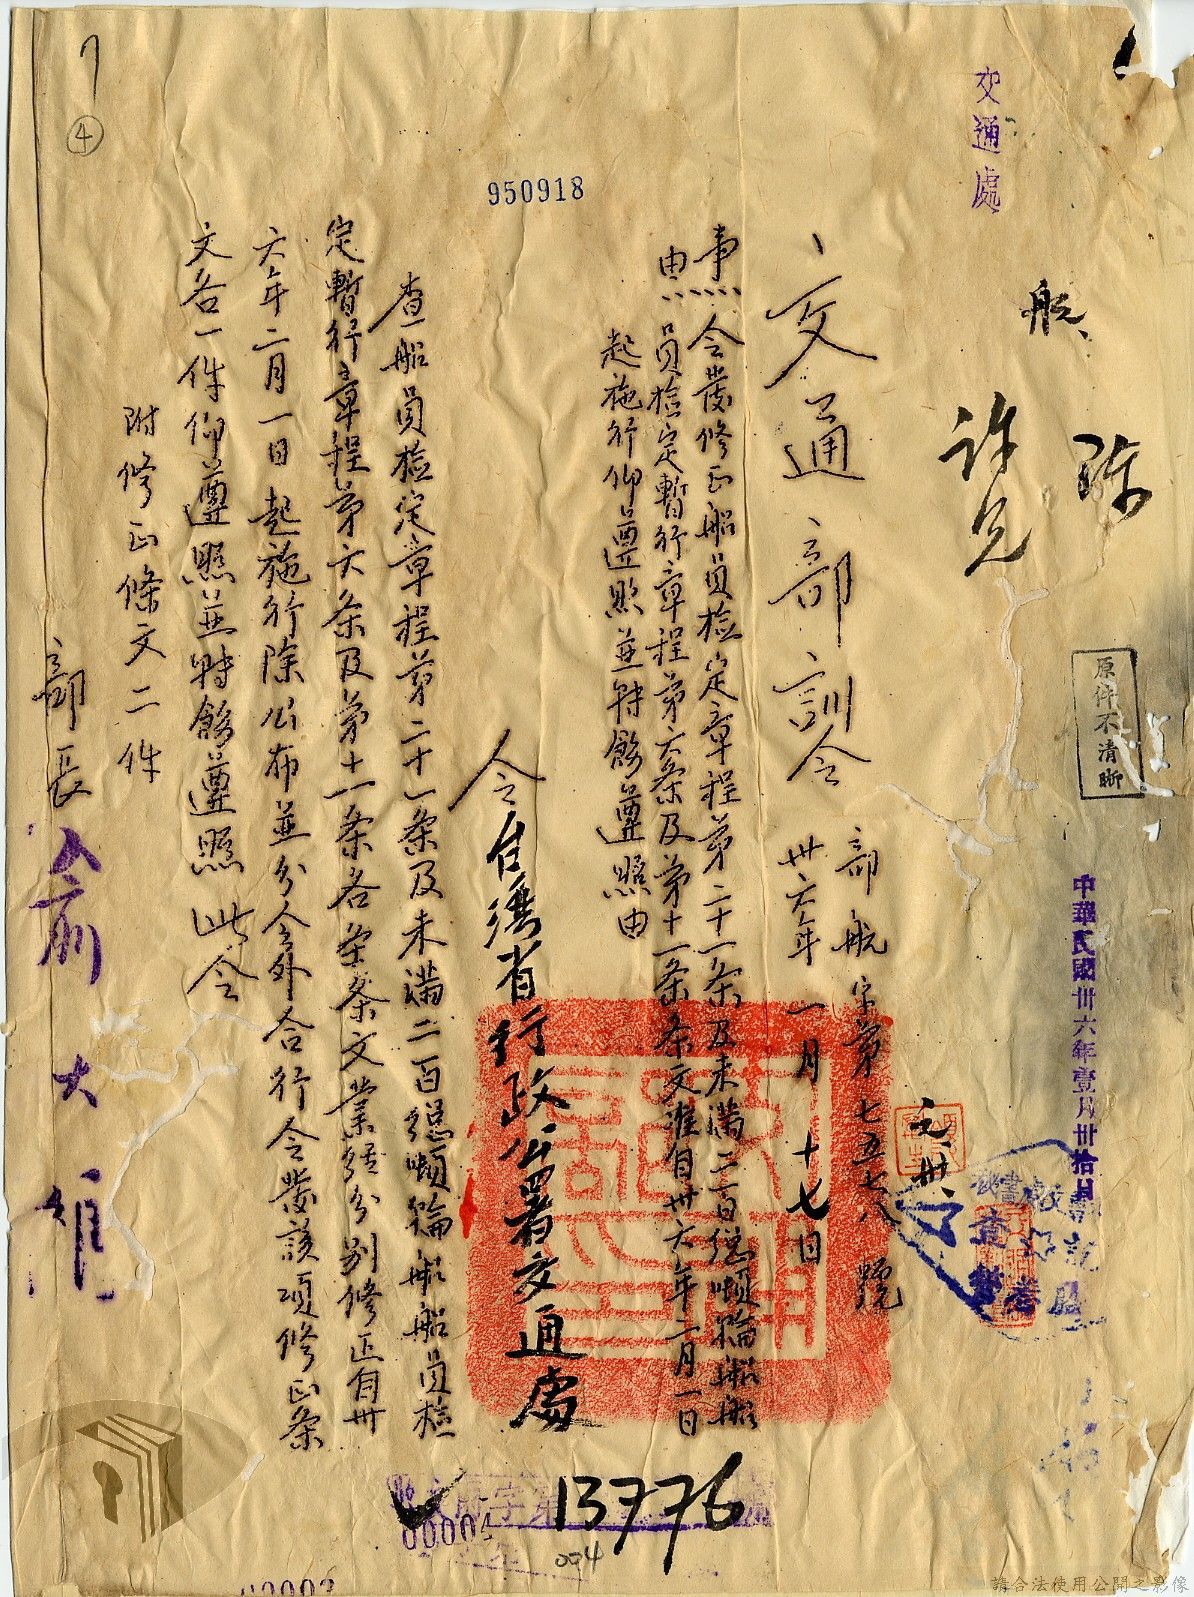 交通處
航
陳
許兄
原件不清晰
中華民國卅六年壹月卅拾日
交通部訓令
部航字第七五七八號
卅六年一月十七日
事由
令發修正船員檢定章程第二十一条及未滿二百總噸輪船船
員檢定暫行章程第六条及第十一条条文准自卅六年二月一日
起施行仰遵照並转飭遵照由
令台灣省行政公署交通處
查船員檢定章程第二十一条及未滿二百總噸輪船船員檢
定暫行章程第六条及第十一条各条条文業經分別修正自卅
六年二月一日起施行除公布並分令外合行令發該項修正条
文各一件仰遵照並转飭遵照此令
附修正條文二件
部長俞大維
950918
7
4
13776
004
請合法使用公開之影像